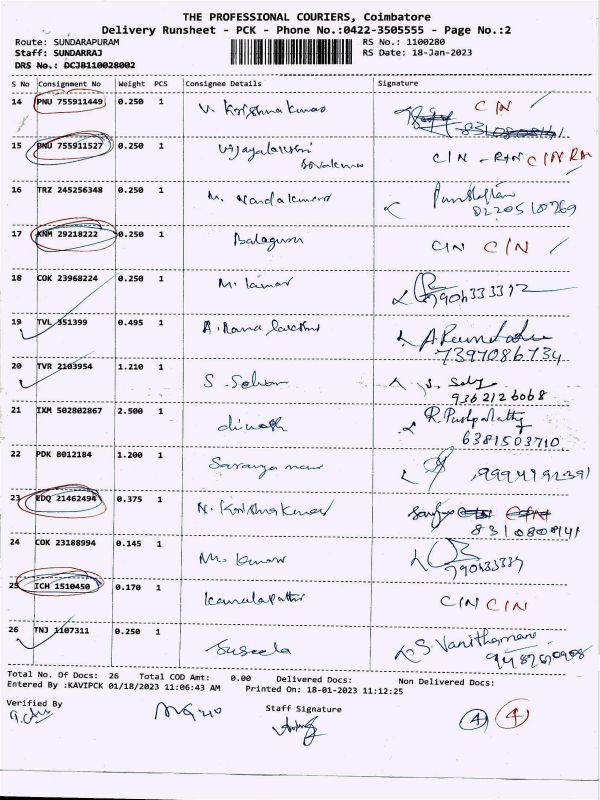 THE PROFESSIONAL COURIERS, Coimbatore
Delivery Runsheet - PCK - Phone No.:0422-3505555 - Page No.:2
Route: SUNDARAPURAM RS No.: 1100280
Staff: SUNDARRAJ RS Date: 18-Jan-2023
DRS No.: DCJB110028002
S No Consignment No Weight PCS Consignee Details Signature
14 PNU 755911449 0.250 1 V. Krishnakumar C/N
15 PNU 755911527 0.250 1 C/N - RTN C/N RTN
16 TRZ 245256348 0.250 1 M. Nandakumar
17 KNM 29218222 0.250 1 Balaguru C/N C/N
18 COK 23968224 0.250 1 M. Kumar
19 TVL 351399 0.495 1 A. Rama Lakshmi 7397086734
20 TVR 2103954 1.210 1 9362126068
21 IXM 502802867 2.500 1 dinesh R. Pushpalatha
6381503710
22 PDK 8012184 1.200 1 9994192391
23 EDQ 21462494 0.375 1 N. Krishnakumar C/N C/N
8310800141
24 COK 23188994 0.145 1 Kumar
25 ICH 1510450 0.170 1 C/N C/N
26 TNJ 1107311 0.250 1 Suseela S. Vanithamani
Total No. Of Docs: 26 Total COD Amt: 0.00 Delivered Docs: Non Delivered Docs:
Entered By :KAVIPCK 01/18/2023 11:06:43 AM Printed On: 18-01-2023 11:12:25
Verified By Staff Signature
4 4